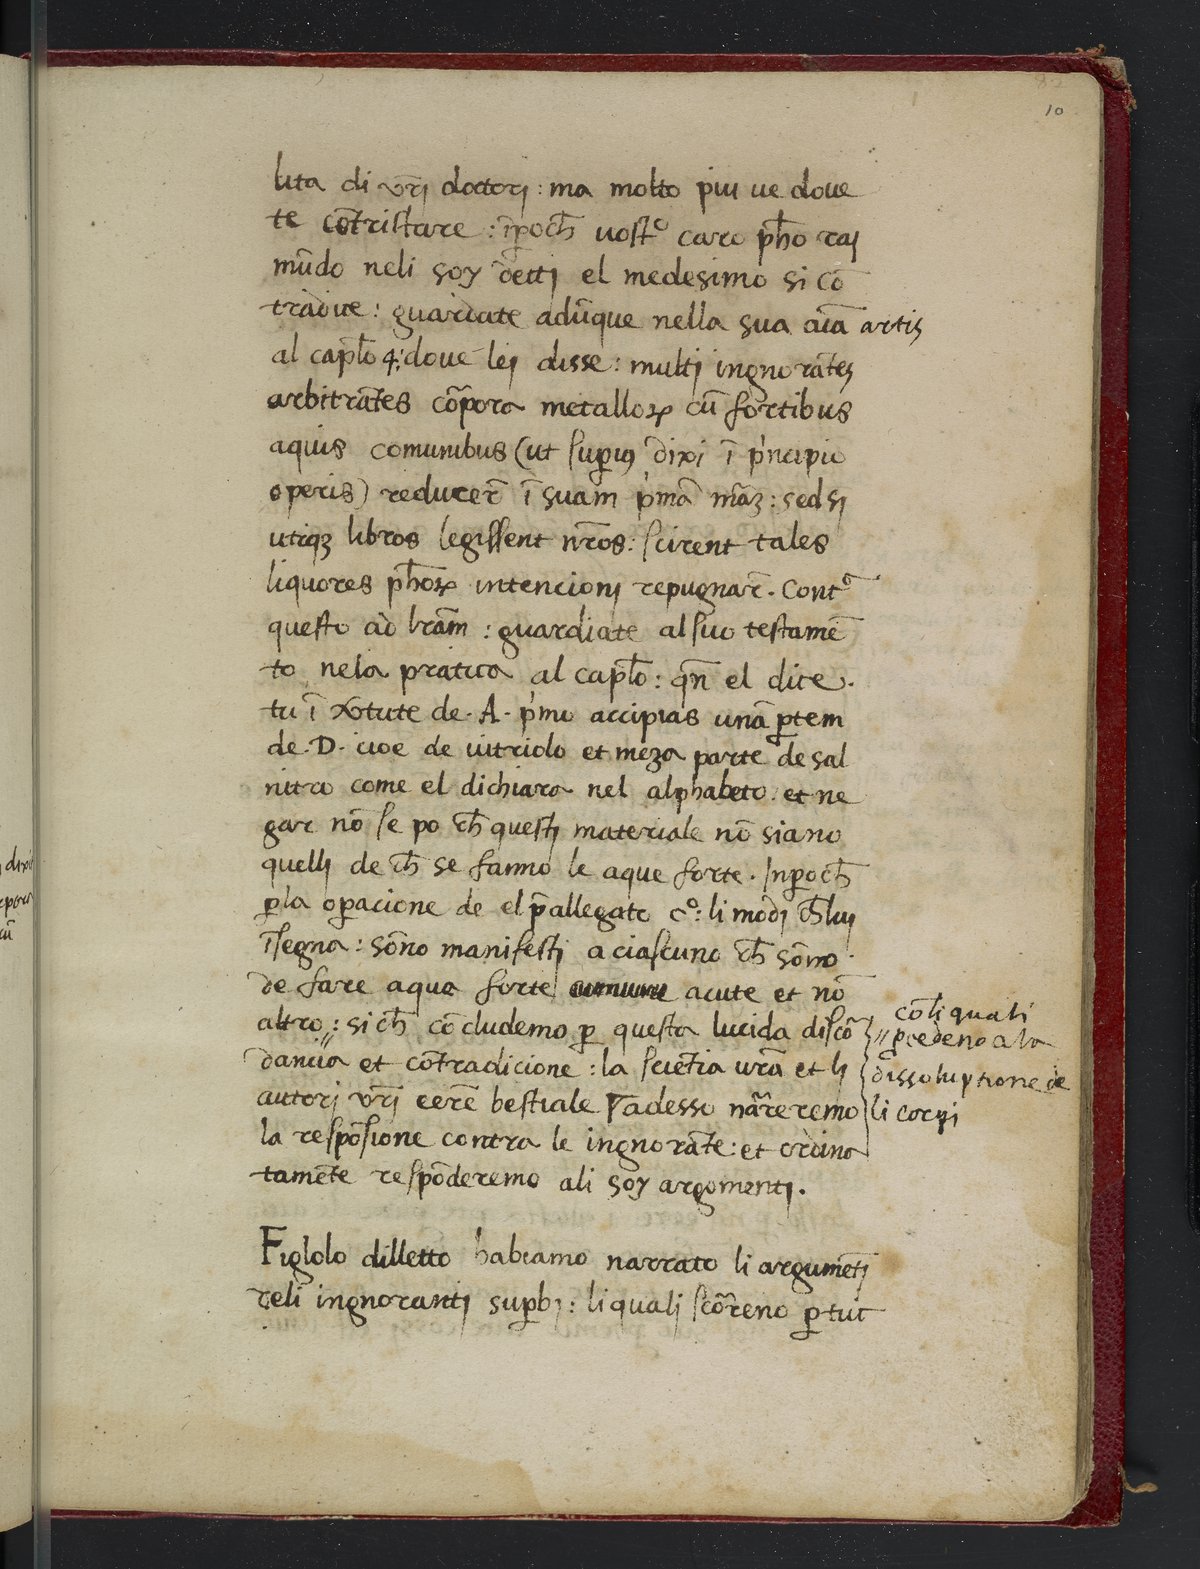 10
lita di vr̄j dottorj : ma molto piu ue doue
te cōtristare : īꝑoch̄ uostº caro ph̄o rai
mūdo neli soy dettj el medesimo si cō
tradice : guardate adūque nella sua aīa artis
al capl̄o 4 : doue lej disse : multj ingnorātes
arbitrātes cōrpora metalloꝝ cū fortibus
aquis comunibus (ut suꝑius dixi ī pͥncipio
operis) reducer̄ ī suam pͥmā māꝫ : sed si
utiqꝫ libros legissent nr̄os : scirent tales
liquores ph̄oꝝ intencionj repugnar̄ . Contª
questo ad lr̄am : guardiate al suo testamē
to nela pratica al capl̄o : qn̄ el dice .
tu ī v̄tute de . A . pͥmo accipias unā ꝑtem
de . D . cioe de uitriolo et meza parte de sal
nitro come el dichiara nel alphabeto : et ne
gar nō se po ch̄ questj materiale nō siano
quellj de ch̄ se fanno le aque forte . Inꝑoch̄
ꝑ la oꝑacione de el p̄allegato cº : li modj ch̄ luj
īsegna : sōno manifestj a ciascuno ch̄ sōno
de fare aqua forte comune acute et nō
altro : si ch̄ cōcludemo ꝑ questa lucida discō
dancia et cōtradicione : la sciētia ur̄a et li
autorj vr̄j eere̅ bestiale // adesso nār̄eremo
la respōsione contra le ingnorāte : et ordina
tamēte respōderemo ali soy argomentj .
cōli quali
// ꝓcedeno a la
dissoluptione de
li corpi
Figlolo diletto habiamo narrato li argumētj
deli ingnorantj suꝑbj : li qualj scōreno ꝑ tut